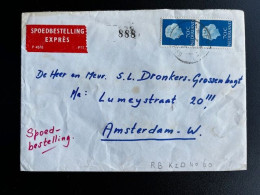 SPOEDBESTELLING
EXPRÈS
888
De Heer en Mevr. S.L. Dronkers-Grossenbagt
Lumeystraat 20
Amsterdam-W.
Spoed-
bestelling.